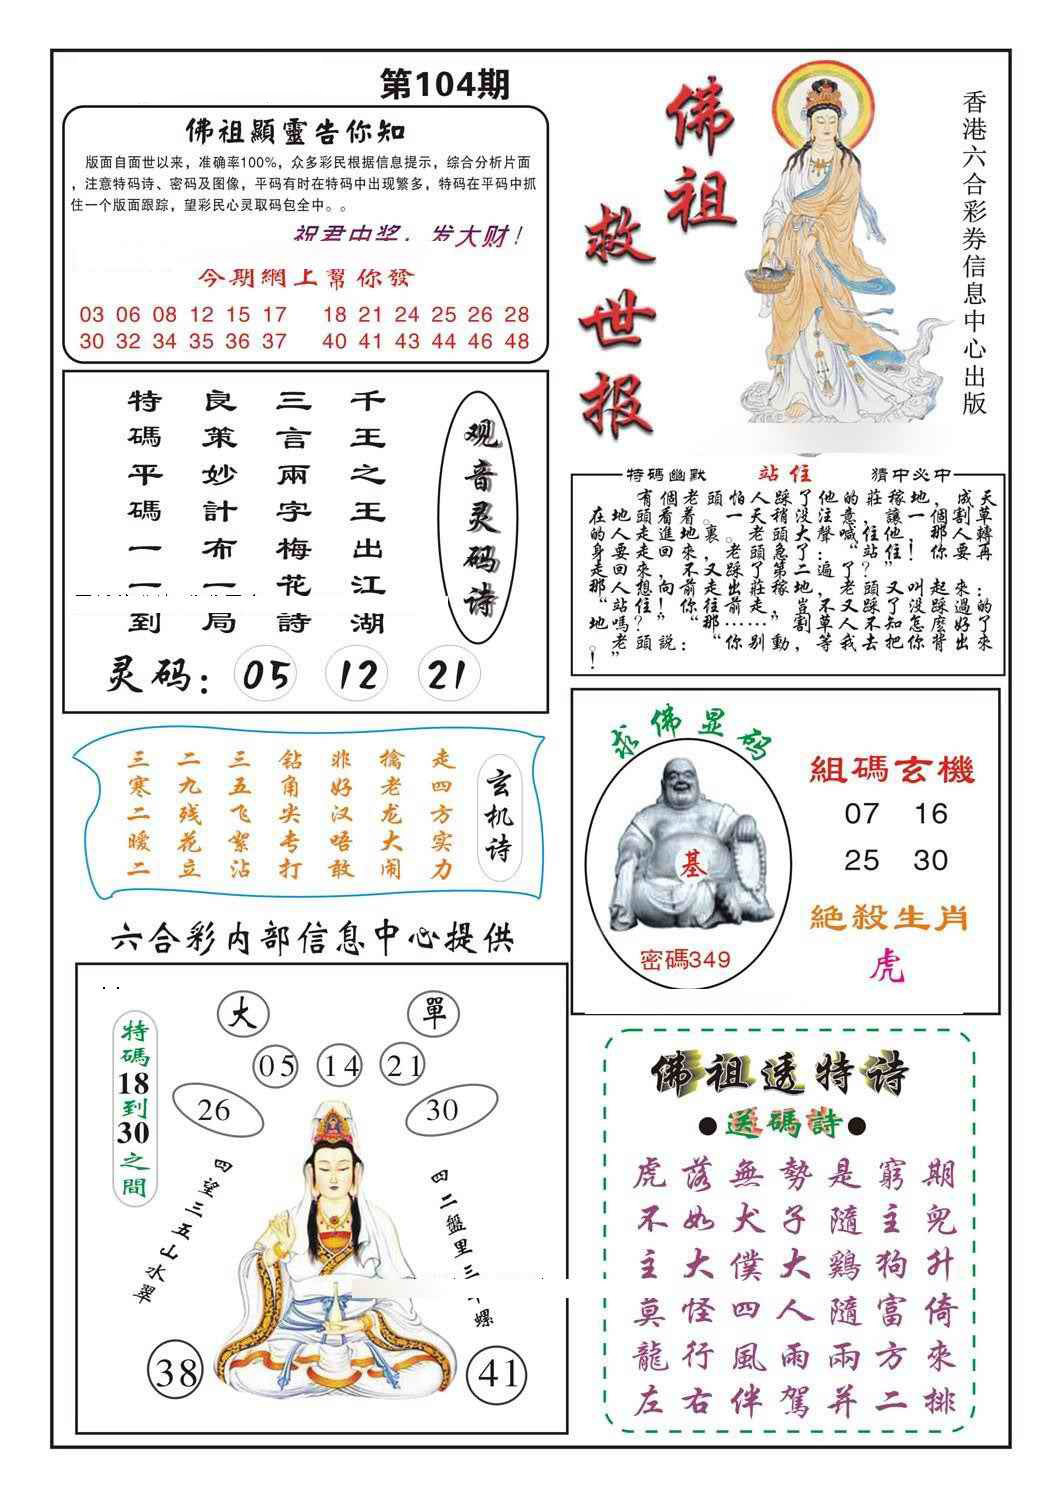 第104期
佛祖顯靈告你知
版面自面世以来，准确率100%，众多彩民根据信息提示，综合分析片面
，注意特码诗、密码及图像，平码有时在特码中出现繁多，特码在平码中抓
住一个版面跟踪，望彩民心灵取码包全中。。
祝君中奖，发大财！
今期網上幫你發
03 06 08 12 15 17 18 21 24 25 26 28
30 32 34 35 36 37 40 41 43 44 46 48
佛祖
救世报
香港六合彩券信息中心出版
观音灵码诗
千王之王出江湖
三言兩字梅花詩
良策妙計布一局
特碼平碼一一到
灵码：05 12 21
特碼幽默 站住 猜中必中
有個老頭怕人踩了他的莊稼地，成天
在地頭看着。一天稍没注意，讓一個割草
的人走進地裏，老頭大聲喊住他！那人轉
身要走回來，老頭急了：“站住！你要再
走回來，又踩了第二遍了？”
那人想不前走，又叫起來：
“站住！你往前走，豈不又踩没踩過的
地嗎？”“那……”
玄机诗
走四方实力
擒老龙大闹
非好汉唔敢
钻角尖专打
三五飞絮沾
二九残花立
三寒二暖二
求佛显码
基
密碼349
組碼玄機
07 16
25 30
絶殺生肖
虎
六合彩内部信息中心提供
特碼18到30之間
大 單
05 14 21
26 30
四望三五山水翠
四二盤里三
螺
38 41
佛祖透特诗
●送碼詩●
虎落無勢是窮期
不如犬子隨主兜
主大僕大鷄狗升
莫怪四人隨富倚
龍行風雨兩方來
左右伴駕并二排